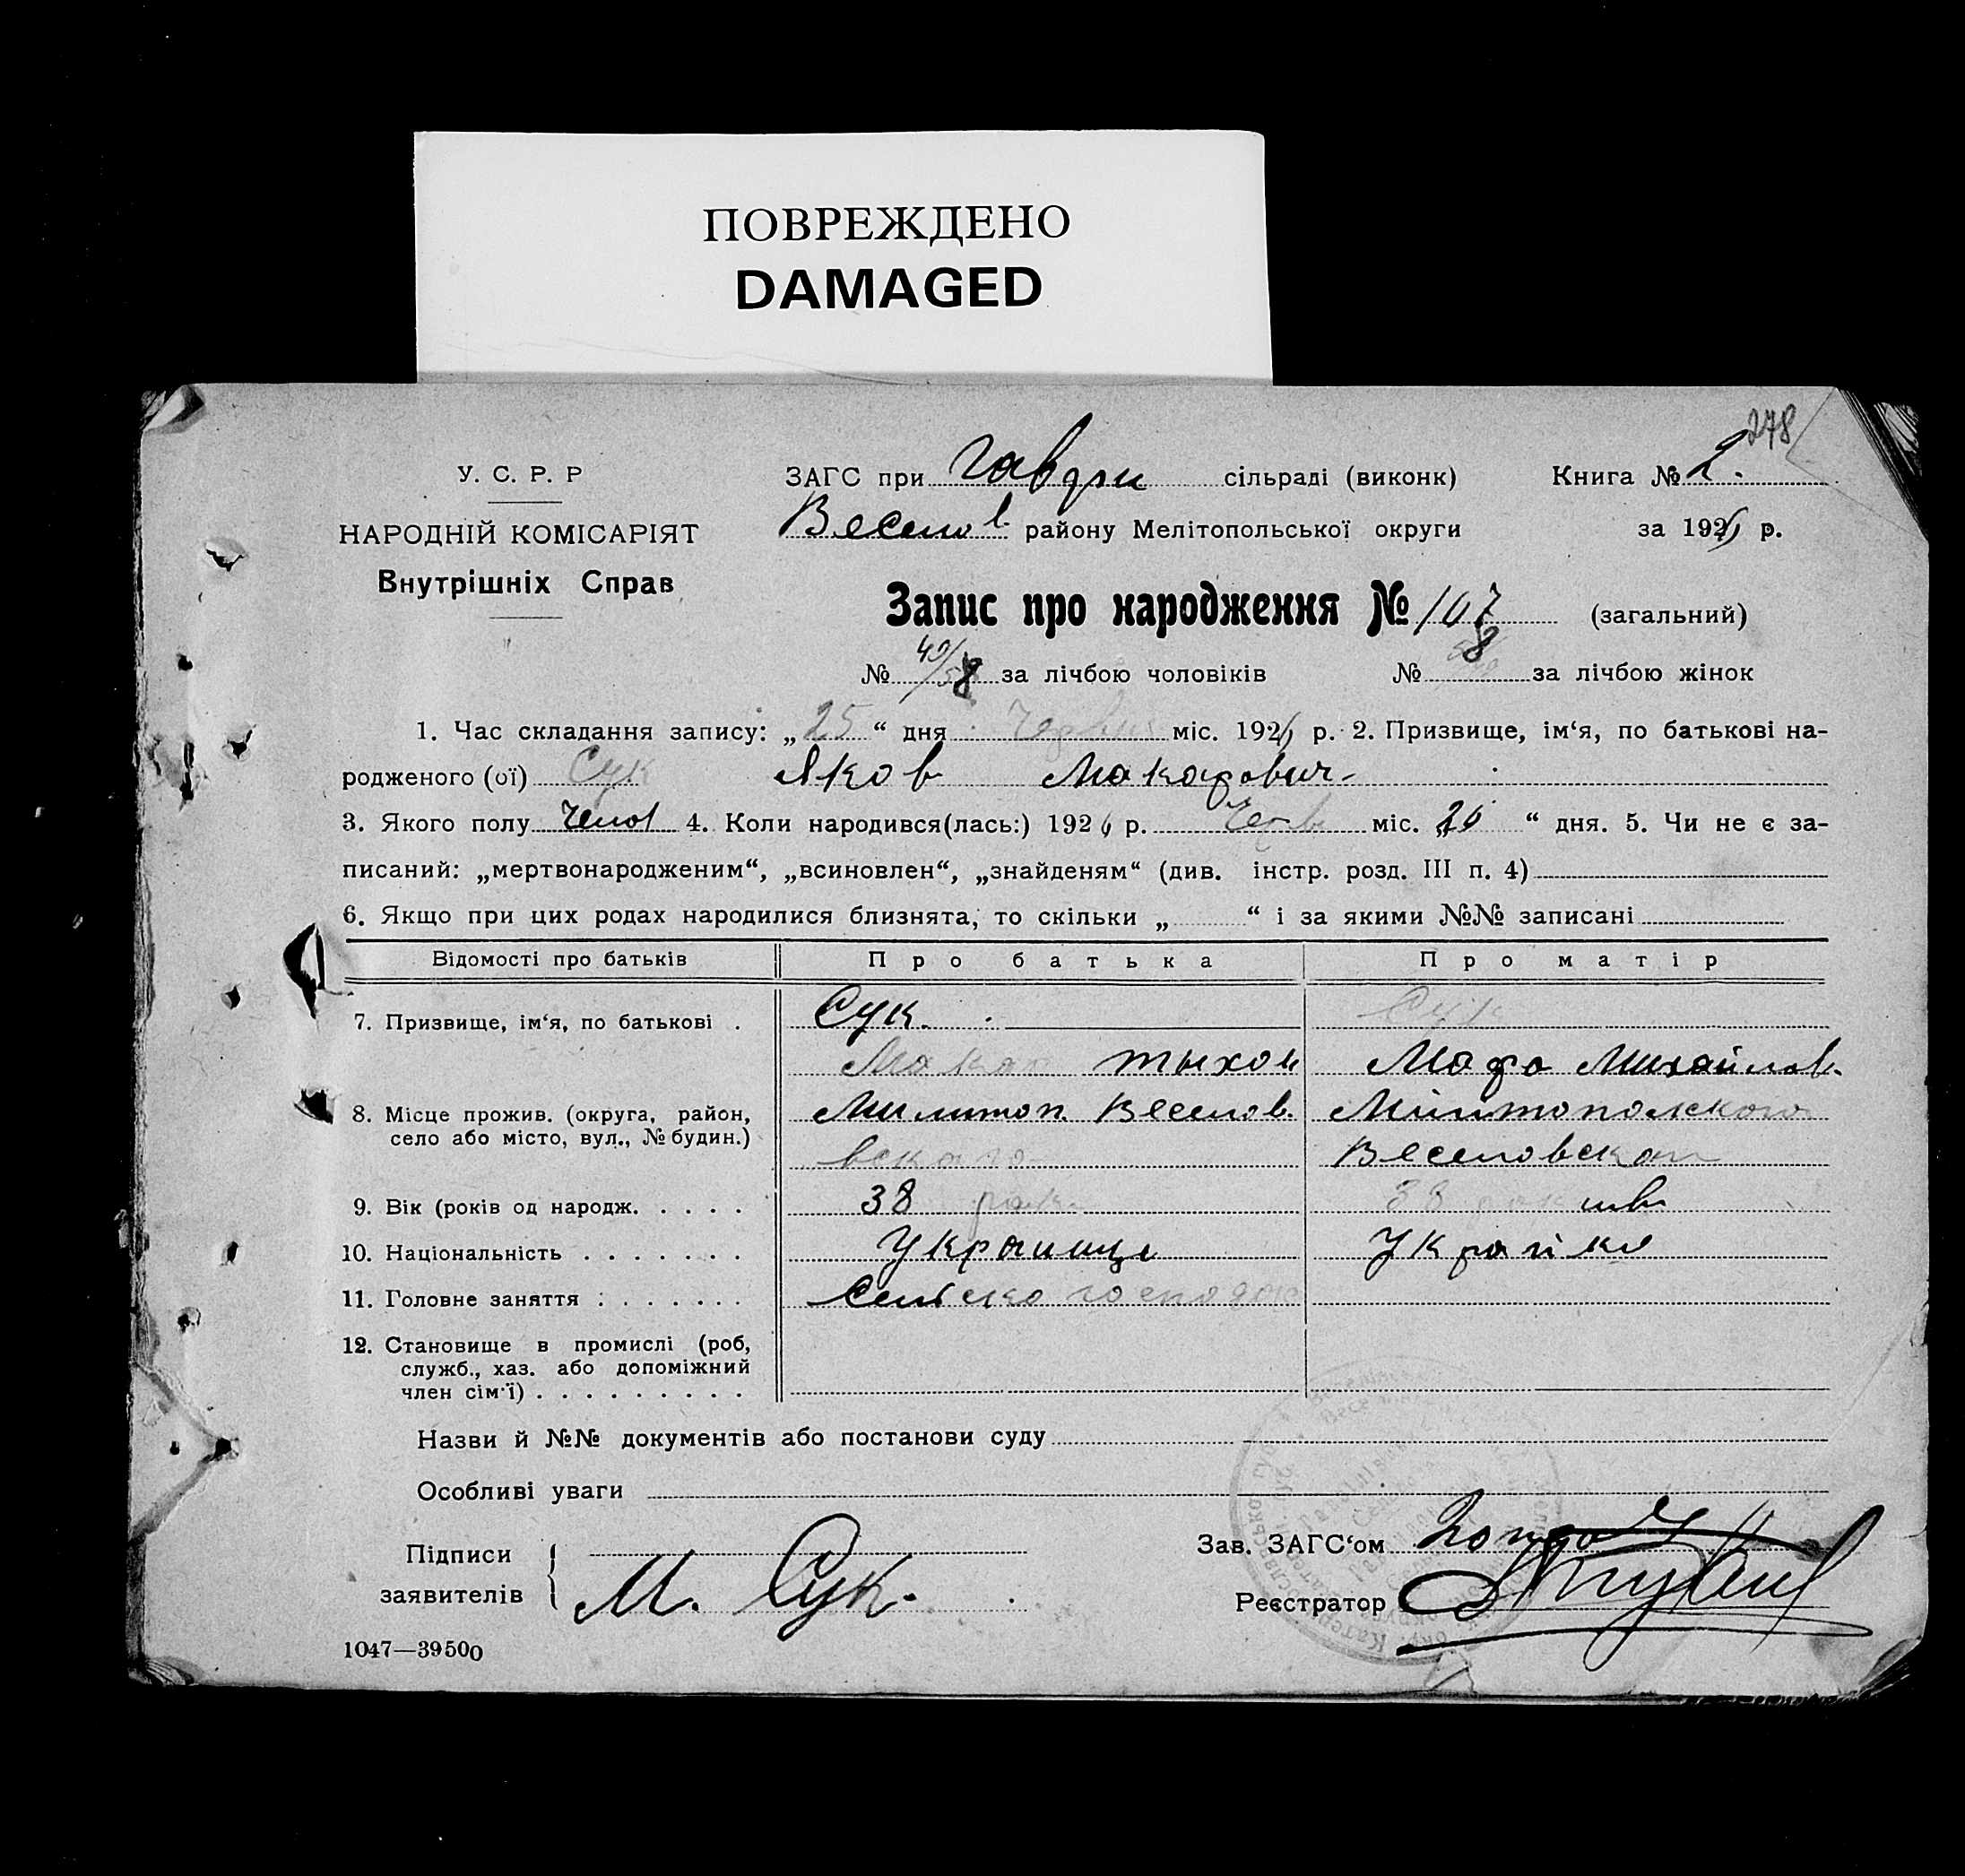 ПОВРЕЖДЕНО
DAMAGED
278
У. С. Р. Р
ЗАГС при Гаврил сільраді (виконк)
Книга № 2.
НАРОДНІЙ КОМІСАРІЯТ
Веселов. району Мелітопольської округи
за 1926 р.
Внутрішніх Справ
Запис про народження № 107 (загальний)
№ 49/58 за лічбою чоловіків № 8 за лічбою жінок
1. Час складання запису: „25“ дня Червня міс. 1926 р. 2. Призвище, ім‘я, по батькові на-
родженого (ої) Сук Яков Макарович
3. Якого полу Челов 4. Коли народився(лась:) 1926 р. Черв міс. „ “ дня. 5. Чи не є за-
писаний: „мертвонародженим“, „всиновлен“, „знайденям“ (див. інстр. розд. III п. 4)
6. Якщо при цих родах народилися близнята, то скільки „ “ і за якими №№ записані
Відомості про батьків
Про батька
Про матір
7. Призвище, ім‘я, по батькові .
Сук.
Сук
Макар Тыхон
Михайлов.
8. Місце прожив. (округа, район,
село або місто, вул., № будин.)
Милитоп. Веселов.
Милитопольского
вскаго
Веселовскаг
9. Вік (років од народж. . . . .
38 рок
38 рок
10. Національність . . . . . . .
Украинць
Украйка
11. Головне заняття : . . . . . .
Сельско господар
12. Становище в промислі (роб,
служб., хаз. або допоміжний
член сім‘ї) . . . . . . . . .
Назви й №№ документів або постанови суду
Особливі уваги
Підписи
заявителів
М. Сук.
Зав. ЗАГС‘ом
Реєстратор
1047—39500